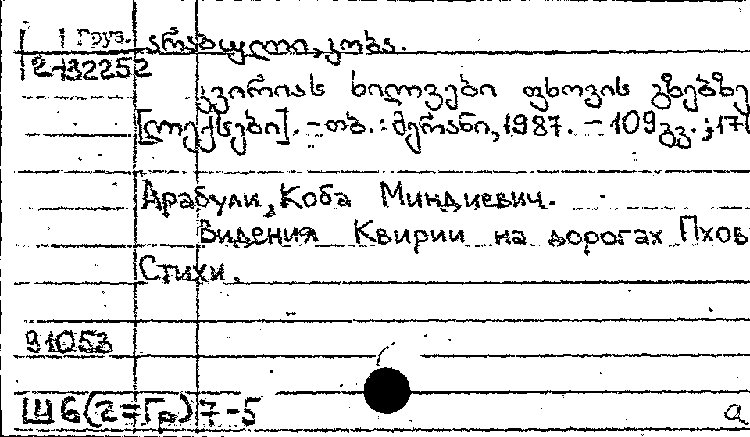 Груз. არაბული, კობა.
2-132252
კვირიას ხილვები ფხოვის გზებზე
[ლექსები]. – თბ. : მერანი, 1987. – 109 გვ. ; 17
Арабули, Коба Миндиевич.
Видения Квирии на дорогах Пхов
Стихи.
91053
Ш6(2=Гр)7-5
а